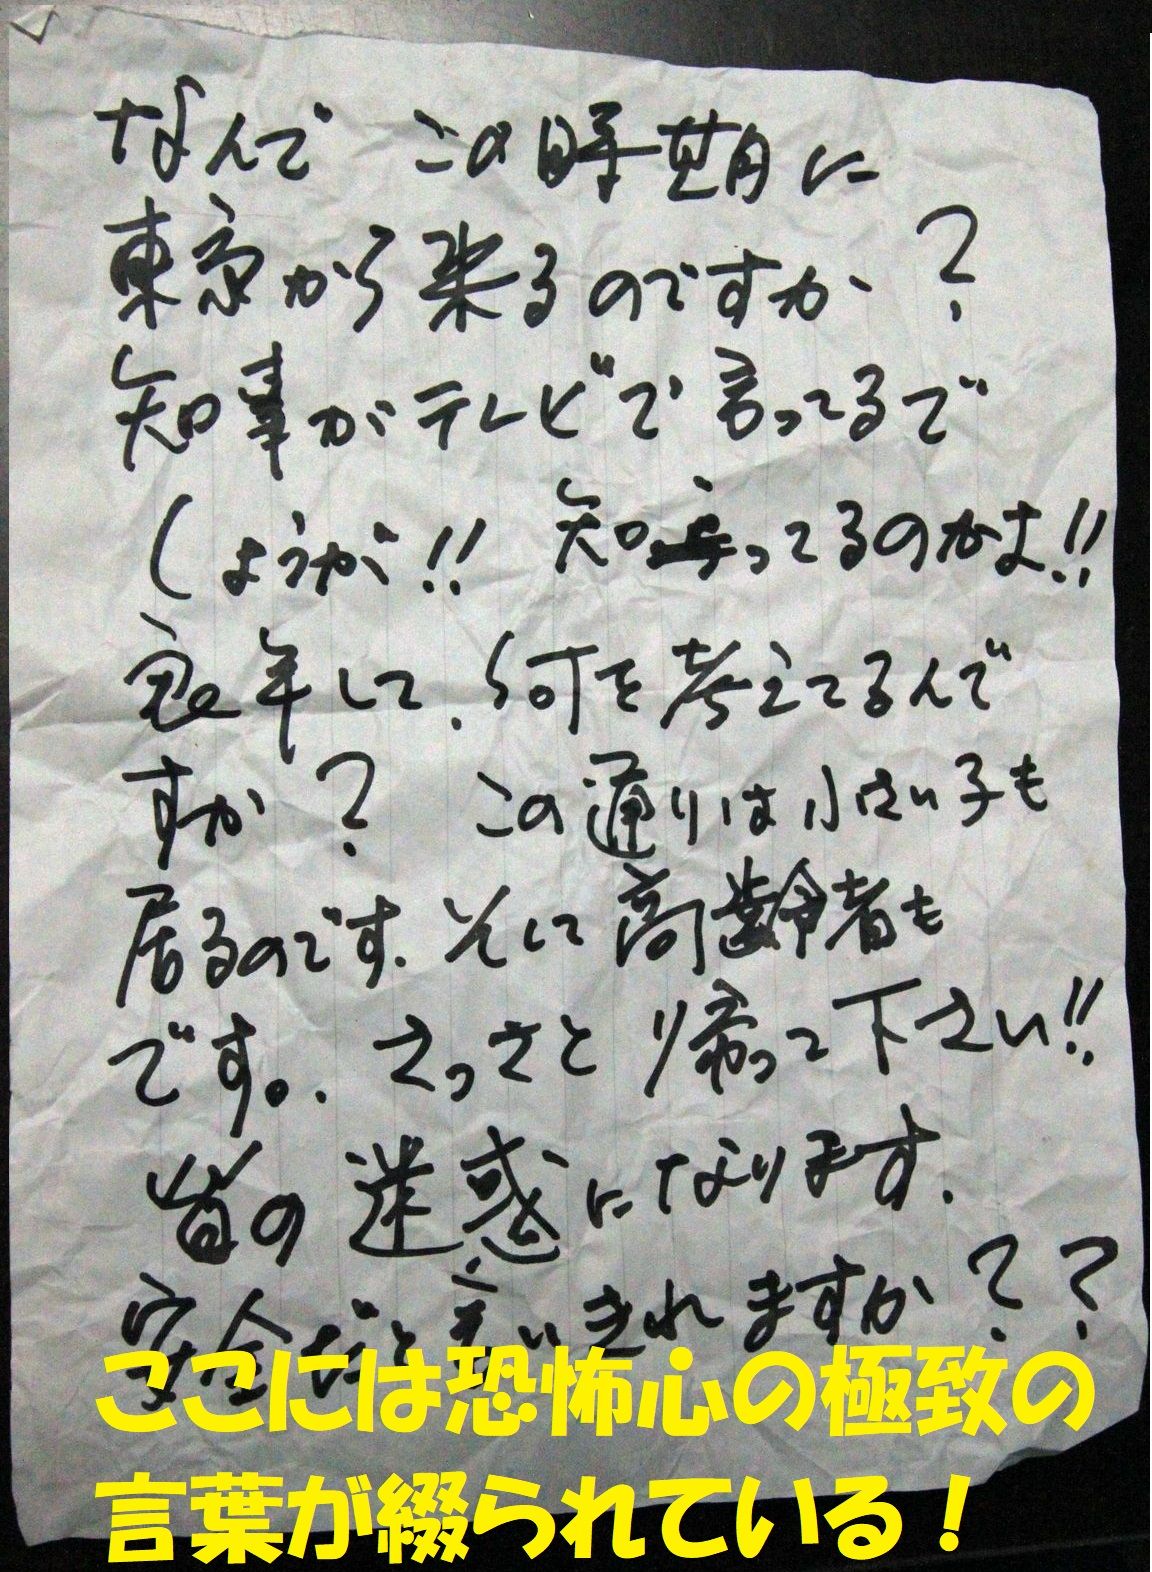 なんで この時期に
東京から来るのですか?
知事がテレビで言ってるで
しょうが!! 知ってるのかよ!!
良い年して、何を考えてるんで
すか? この通りは小さい子も
居るのです、そして高齢者も
です。さっさと帰って下さい!!
皆の迷惑になります。
安全だと言いきれますか??
ここには恐怖心の極致の
言葉が綴られている!